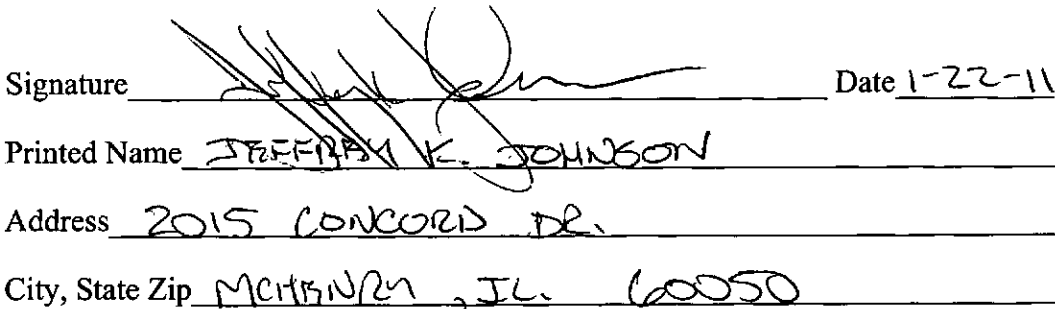 Signature Date 1-22-11
Printed Name JEFFREY K. JOHNSON
Address 2015 CONCORD DR.
City, State Zip MCHENRY, IL. 60050